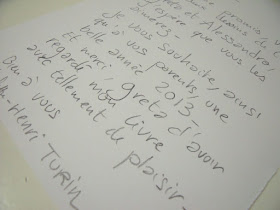 et Alessandro.
que vous les
Je vous souhaite, ainsi
qu'à vos parents, une
belle année 2013.
Et merci, greta d'avoir
regardé mon livre
avec tellement de plaisir.
Bien à vous
Henri TURIN